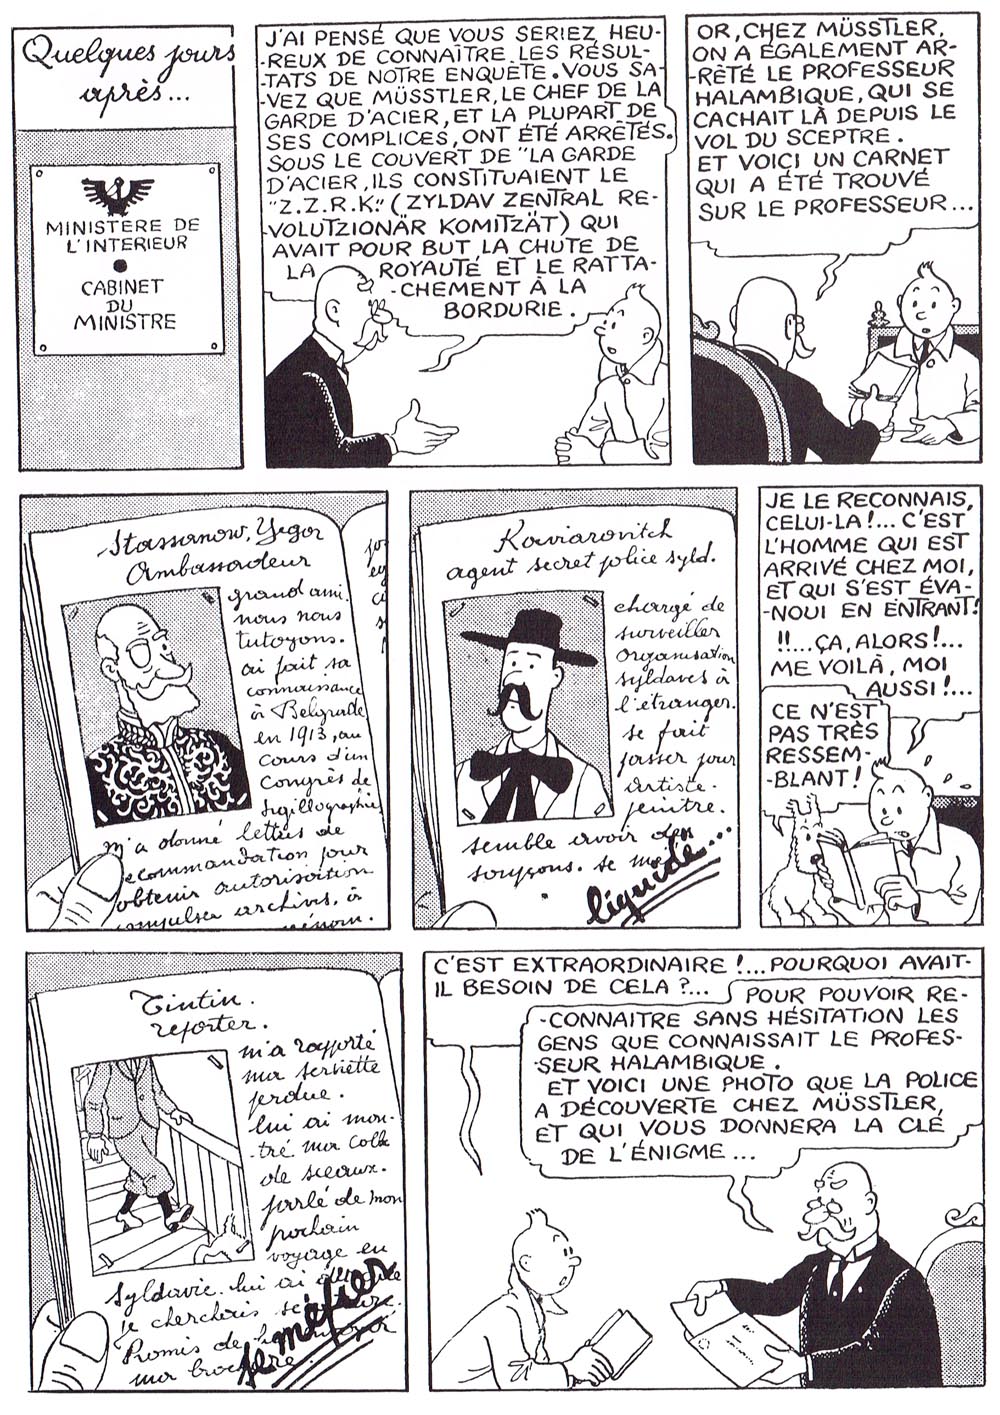 Quelques jours
après...
MINISTÈRE DE
L'INTERIEUR
CABINET
DU
MINISTRE
J'AI PENSÉ QUE VOUS SERIEZ HEU-
-REUX DE CONNAÎTRE LES RÉSUL-
-TATS DE NOTRE ENQUÊTE. VOUS SA-
-VEZ QUE MÜSSTLER, LE CHEF DE LA
GARDE D'ACIER, ET LA PLUPART DE
SES COMPLICES, ONT ÉTÉ ARRÊTÉS.
SOUS LE COUVERT DE "LA GARDE
D'ACIER, ILS CONSTITUAIENT LE
"Z.Z.R.K." (ZYLDAV ZENTRAL RE-
-VOLUTZIONÄR KOMITZÄT) QUI
AVAIT POUR BUT LA CHUTE DE
LA ROYAUTÉ ET LE RATTA-
-CHEMENT À LA
BORDURIE.
OR, CHEZ MÜSSTLER,
ON A ÉGALEMENT AR-
-RÊTÉ LE PROFESSEUR
HALAMBIQUE, QUI SE
CACHAIT LÀ DEPUIS LE
VOL DU SCEPTRE.
ET VOICI UN CARNET
QUI A ÉTÉ TROUVÉ
SUR LE PROFESSEUR...
Stassanow, Yegor
Ambassadeur
grand ami.
nous nous
tutoyons.
ai fait sa
connaissance
à Belgrade
en 1913, au
cours d'un
Congrès de
sigillographie
m'a donné lettres de
recommandation pour
obtenir autorisation
compulser archives, à
Kaviarovitch
agent secret police syld.
chargé de
surveiller
organisation
syldaves à
l'étranger.
se fait
passer pour
artiste-
peintre.
semble avoir des
soupçons. se
liquidé...
JE LE RECONNAIS,
CELUI-LA!... C'EST
L'HOMME QUI EST
ARRIVÉ CHEZ MOI,
ET QUI S'EST ÉVA-
-NOUI EN ENTRANT!
!!...ÇA, ALORS!...
ME VOILÀ, MOI
AUSSI!...
CE N'EST
PAS TRÈS
RESSEM-
-BLANT!
Tintin.
reporter.
m'a rapporté
ma serviette
perdue.
lui ai mon-
-tré ma coll.
de sceaux.
parlé de mon
prochain
voyage en
Syldavie. lui ai
je cherchais
Promis de
ma brochure.
se méfier
C'EST EXTRAORDINAIRE!...POURQUOI AVAIT-
IL BESOIN DE CELA?...
POUR POUVOIR RE-
-CONNAITRE SANS HÉSITATION LES
GENS QUE CONNAISSAIT LE PROFES-
-SEUR HALAMBIQUE.
ET VOICI UNE PHOTO QUE LA POLICE
A DÉCOUVERTE CHEZ MÜSSTLER,
ET QUI VOUS DONNERA LA CLÉ
DE L'ÉNIGME...